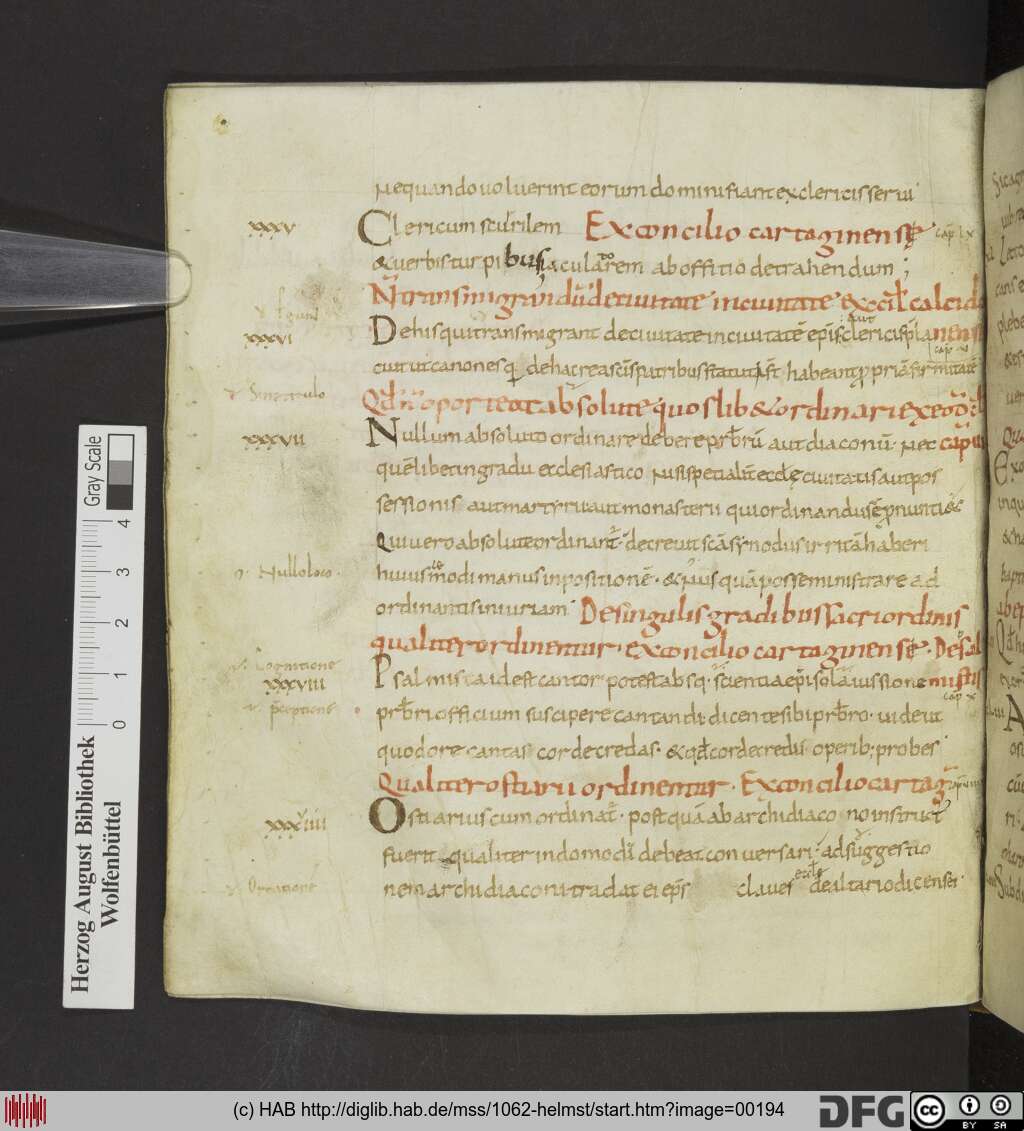 nequando uoluerint eorum domini fiant ex clericis serui
xxxv Clericum scurrilem Ex concilio cartaginense cap lx
& uerbis turpibus ioculatorem ab offitio detrahendum;
N̄ transmigrandū de ciuitate in ciuitatē ex ccił calcido
xxxvi De his qui transmigrant de ciuitate in ciuitatē ep̄is clericis placuit nens
cuit ut canones q de hac re a sc̄is patribus statuti st̄ habeant ppriā firmitatē
Sinetitulo
Qđ n̄ oporteat absolute quoslib& ordinari ex eođ cł
xxxvii Nullum absolute ordinare debere prb̄rū aut diaconū nec cap̄ ui
quēlibet in gradu ecclesiastico nisi specialit̄ eccłę ciuitatis aut pos
sessionis aut martyrii aut monasterii qui ordinandus ē pnunti&
Qui uero absolute ordinant̄ decreuit sc̄a synodus irritā haberi
Nulloloco huiuscemodi manus inpositionē & nusquā posse ministrare ad
ordinantis iniuriam De singulis gradibus sacri ordinis
qualiter ordinentur ex concilio cartaginense De sal
Cognitione
xxxviii Psalmista id est cantor potest absq scientia ep̄i sola iussione mistis
pceptione cap x
prb̄ri officium suscipere cantandi dicente sibi prb̄ro uide ut
quod ore cantas corde credas & qđ corde credis operib; probes
Qualiter ostiarii ordinentur Ex concilio cartag
xxxviiii Ostiarius cum ordinat̄ postquā ab archidiacono instruct
fuerit qualiter in domo dī debeat conuersari ad suggestio
Oratione nem archidiaconi tradat ei ep̄s claues eccłe de altario dicens ei
Gray Scale
0 1 2 3 4
Herzog August Bibliothek
Wolfenbüttel
(c) HAB http://diglib.hab.de/mss/1062-helmst/start.htm?image=00194
DFG
cc BY SA